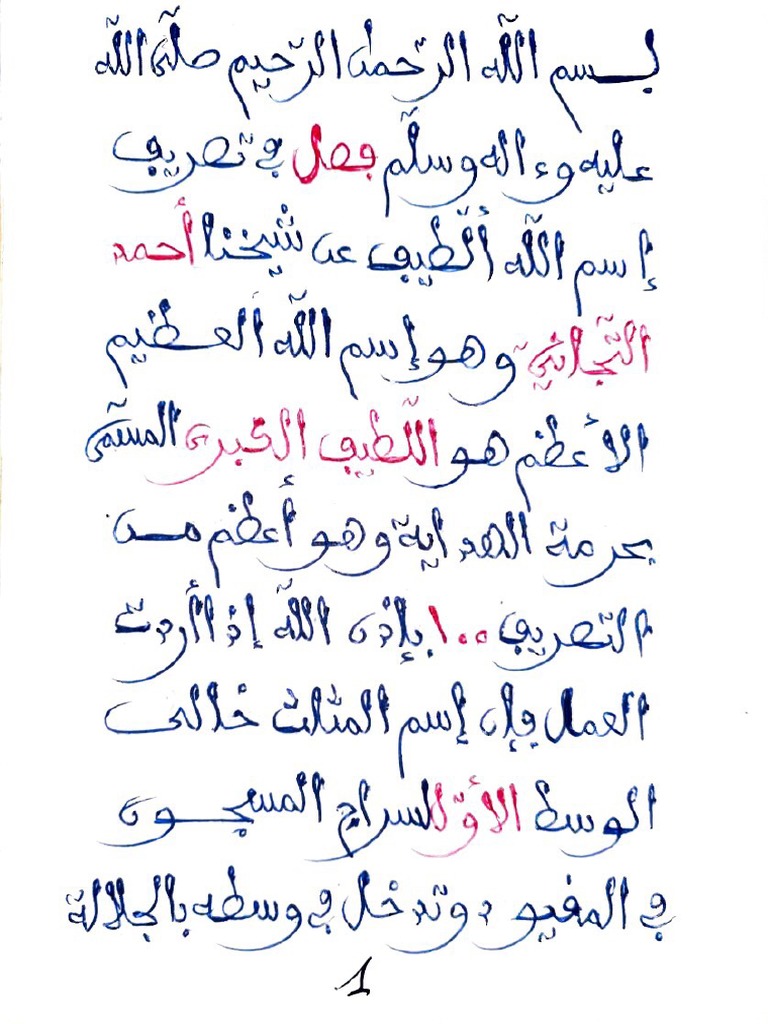 بسم اللّٰه الرّحمٰن الرّحيم صلّى اللّٰه
عليه وءاله وسلّم فصل في تصريف
إسم اللّٰه ألّطيف عن شيخنا أحمد
التّجاني وهو إسم اللّٰه ألعظيم
الأعظم هو اللّطيف الكبرى المسمّى
بحرمة الهداية وهو أعظم من
التصريف ١٠٠ بإذن اللّٰه إذا أردت
العمل فإن إسم المثلث خالى
الوسط الأوّل للسراح المسجون
في المفيود وتدخل في وسطه بالجلالة
1